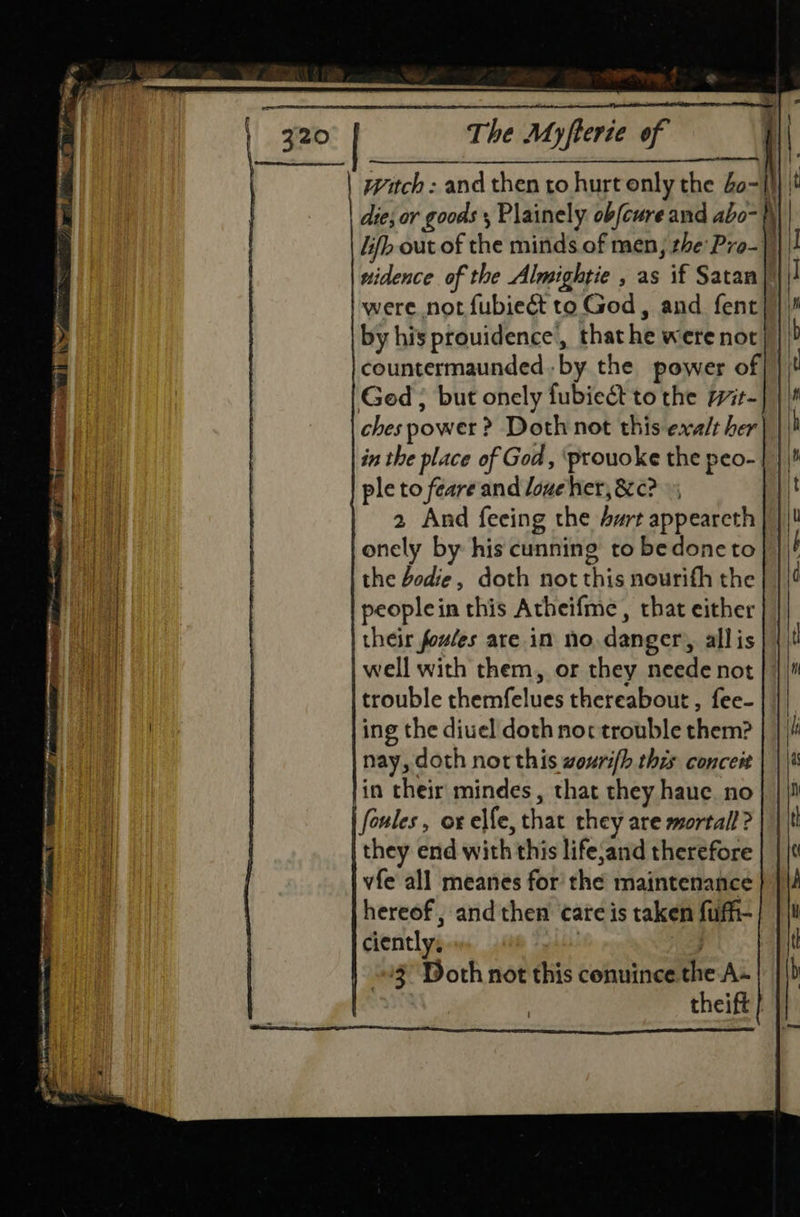 320 The Myſterie of
Witch: and then to hurt only the bo-
die, or goods, Plainely obſcure and abo-
liſh out of the minds of men, the Pro-
uidence of the Almightie, as if Satan
were not ſubiect to God, and ſent
by his prouidence, that he were not
countermaunded by the power of
God; but onely ſubiect to the Wit-
ches power? Doth not this exalt her
in the place of God, prouoke the peo-
ple to feare and loue her, &c?
2 And ſeeing the hurt appeareth
onely by his cunning to be done to
the bodie, doth not this nouriſh the
people in this Atheiſme, that either
their ſoules are in no danger, all is
well with them, or they neede not
trouble themſelues thereabout, ſee-
ing the diuel doth not trouble them?
nay, doth not this nouriſh this conceit
in their mindes, that they haue no
ſoules, or elſe, that they are mortall?
they end with this life, and therefore
vſe all meanes for the maintenance
hereof, and then care is taken ſuffi-
ciently.
3 Doth not this conuince the A-
theiſt